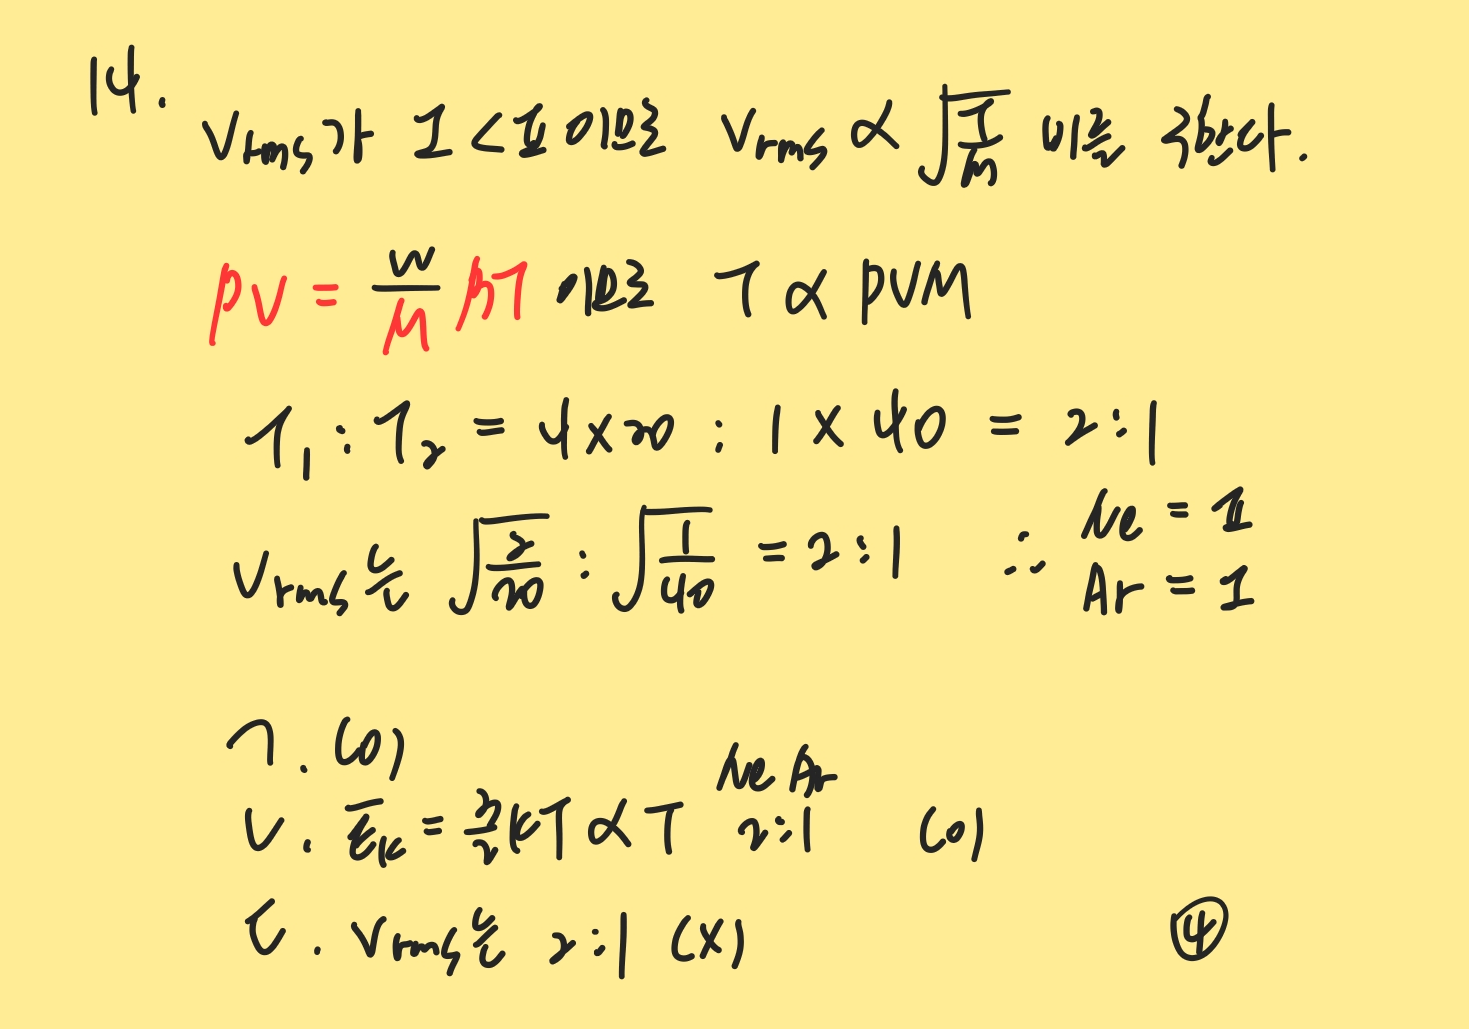 14.
Vrms가 I < II 이므로 Vrms ∝ √(T/M) 비를 구한다.
PV = w/M RT 이므로 T ∝ PVM
T₁ : T₂ = 4 × 20 : 1 × 40 = 2 : 1
Vrms는 √(2/20) : √(1/40) = 2 : 1 ∴ Ne = II
Ar = I
ㄱ. (O)
ㄴ. Ēk = 3/2 kT ∝ T Ne Ar 2 : 1 (O)
ㄷ. Vrms는 2 : 1 (X)
④